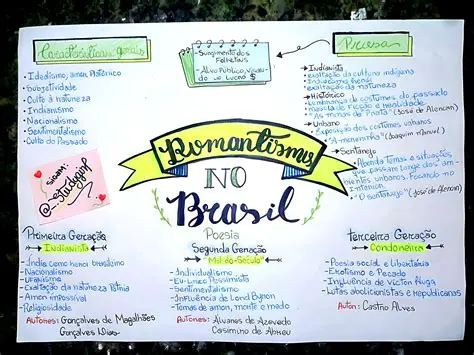 Características gerais
· Idealismo, amor Platônico
· Subjetividade
· Culto à natureza
· Indianismo
· Nacionalismo
· Sentimentalismo
· Culto do Passado
· Surgimento dos
Folhetins
· Alvo: Público, visan
do o lucro $
Prosa
→ Indianista
exaltação da cultura indígena
Indígena herói
exaltação da natureza
→ Histórico
Lembrança de costumes do passado
mescla de ficção e realidade
"As minas de Prata" (José de Alencar)
→ Urbano
Exposição dos costumes urbanos
"A moreninha" (Joaquim Manuel)
→ Sertanejo
Aborda temas e situações
que passam longe dos am-
bientes urbanos, focando no
interior
"O sertanejo" (José de Alencar)
SIGAM:
Romantismo
NO
Brasil
Poesia
Primeira Geração
Indianista
· Índio como herói brasileiro
· Nacionalismo
· Ufanismo
· Exaltação da natureza Pátria
· Amor impossível
· Religiosidade
Autores: Gonçalves de Magalhães
Gonçalves Dias
Segunda Geração
"Mal do Século"
· Individualismo
· Eu-lírico Pessimista
· Sentimentalismo
· Influência de Lord Byron
· Temas de amor, morte e medo
Autores: Álvares de Azevedo
Casimiro de Abreu
Terceira Geração
Condoreira
· Poesia social e Libertária
· Erotismo e Pecado
· Influência de Victor Hugo
· Lutas abolicionistas e republicanas
Autor: Castro Alves